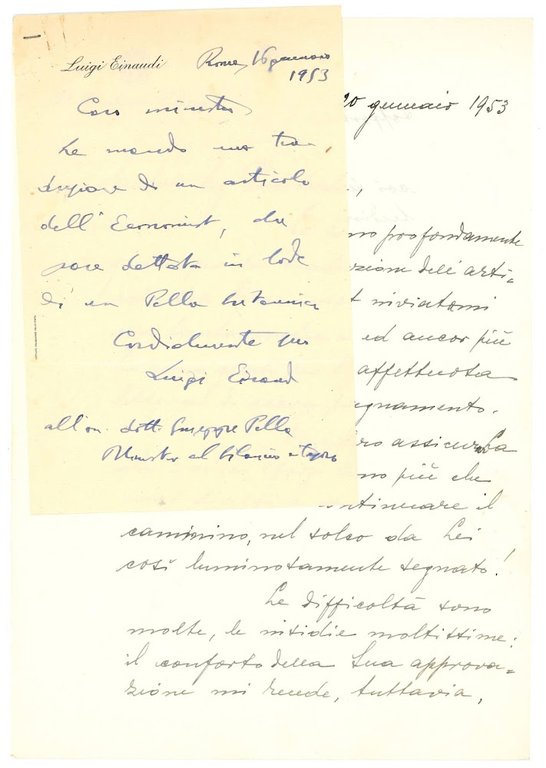 Luigi Einaudi
Roma, 16 gennaio
1953
Caro ministro,
Le mando una tra-
duzione di un articolo
dell'Economist, che
pare dettata in lode
di un Pella britannico
Cordialmente suo
Luigi Einaudi
all'on. dott. Giuseppe Pella
Ministro al bilancio e tesoro
20 gennaio 1953
profondamente
zione dell'arti=
inviatomi
ed ancor più
affettuosa
gnamento.
assicurarLa
più che
continuare il
cammino, nel solco da Lei
così luminosamente segnato!
Le difficoltà sono
molte, le insidie moltissime:
il conforto della Sua approva=
zione mi rende, tuttavia,